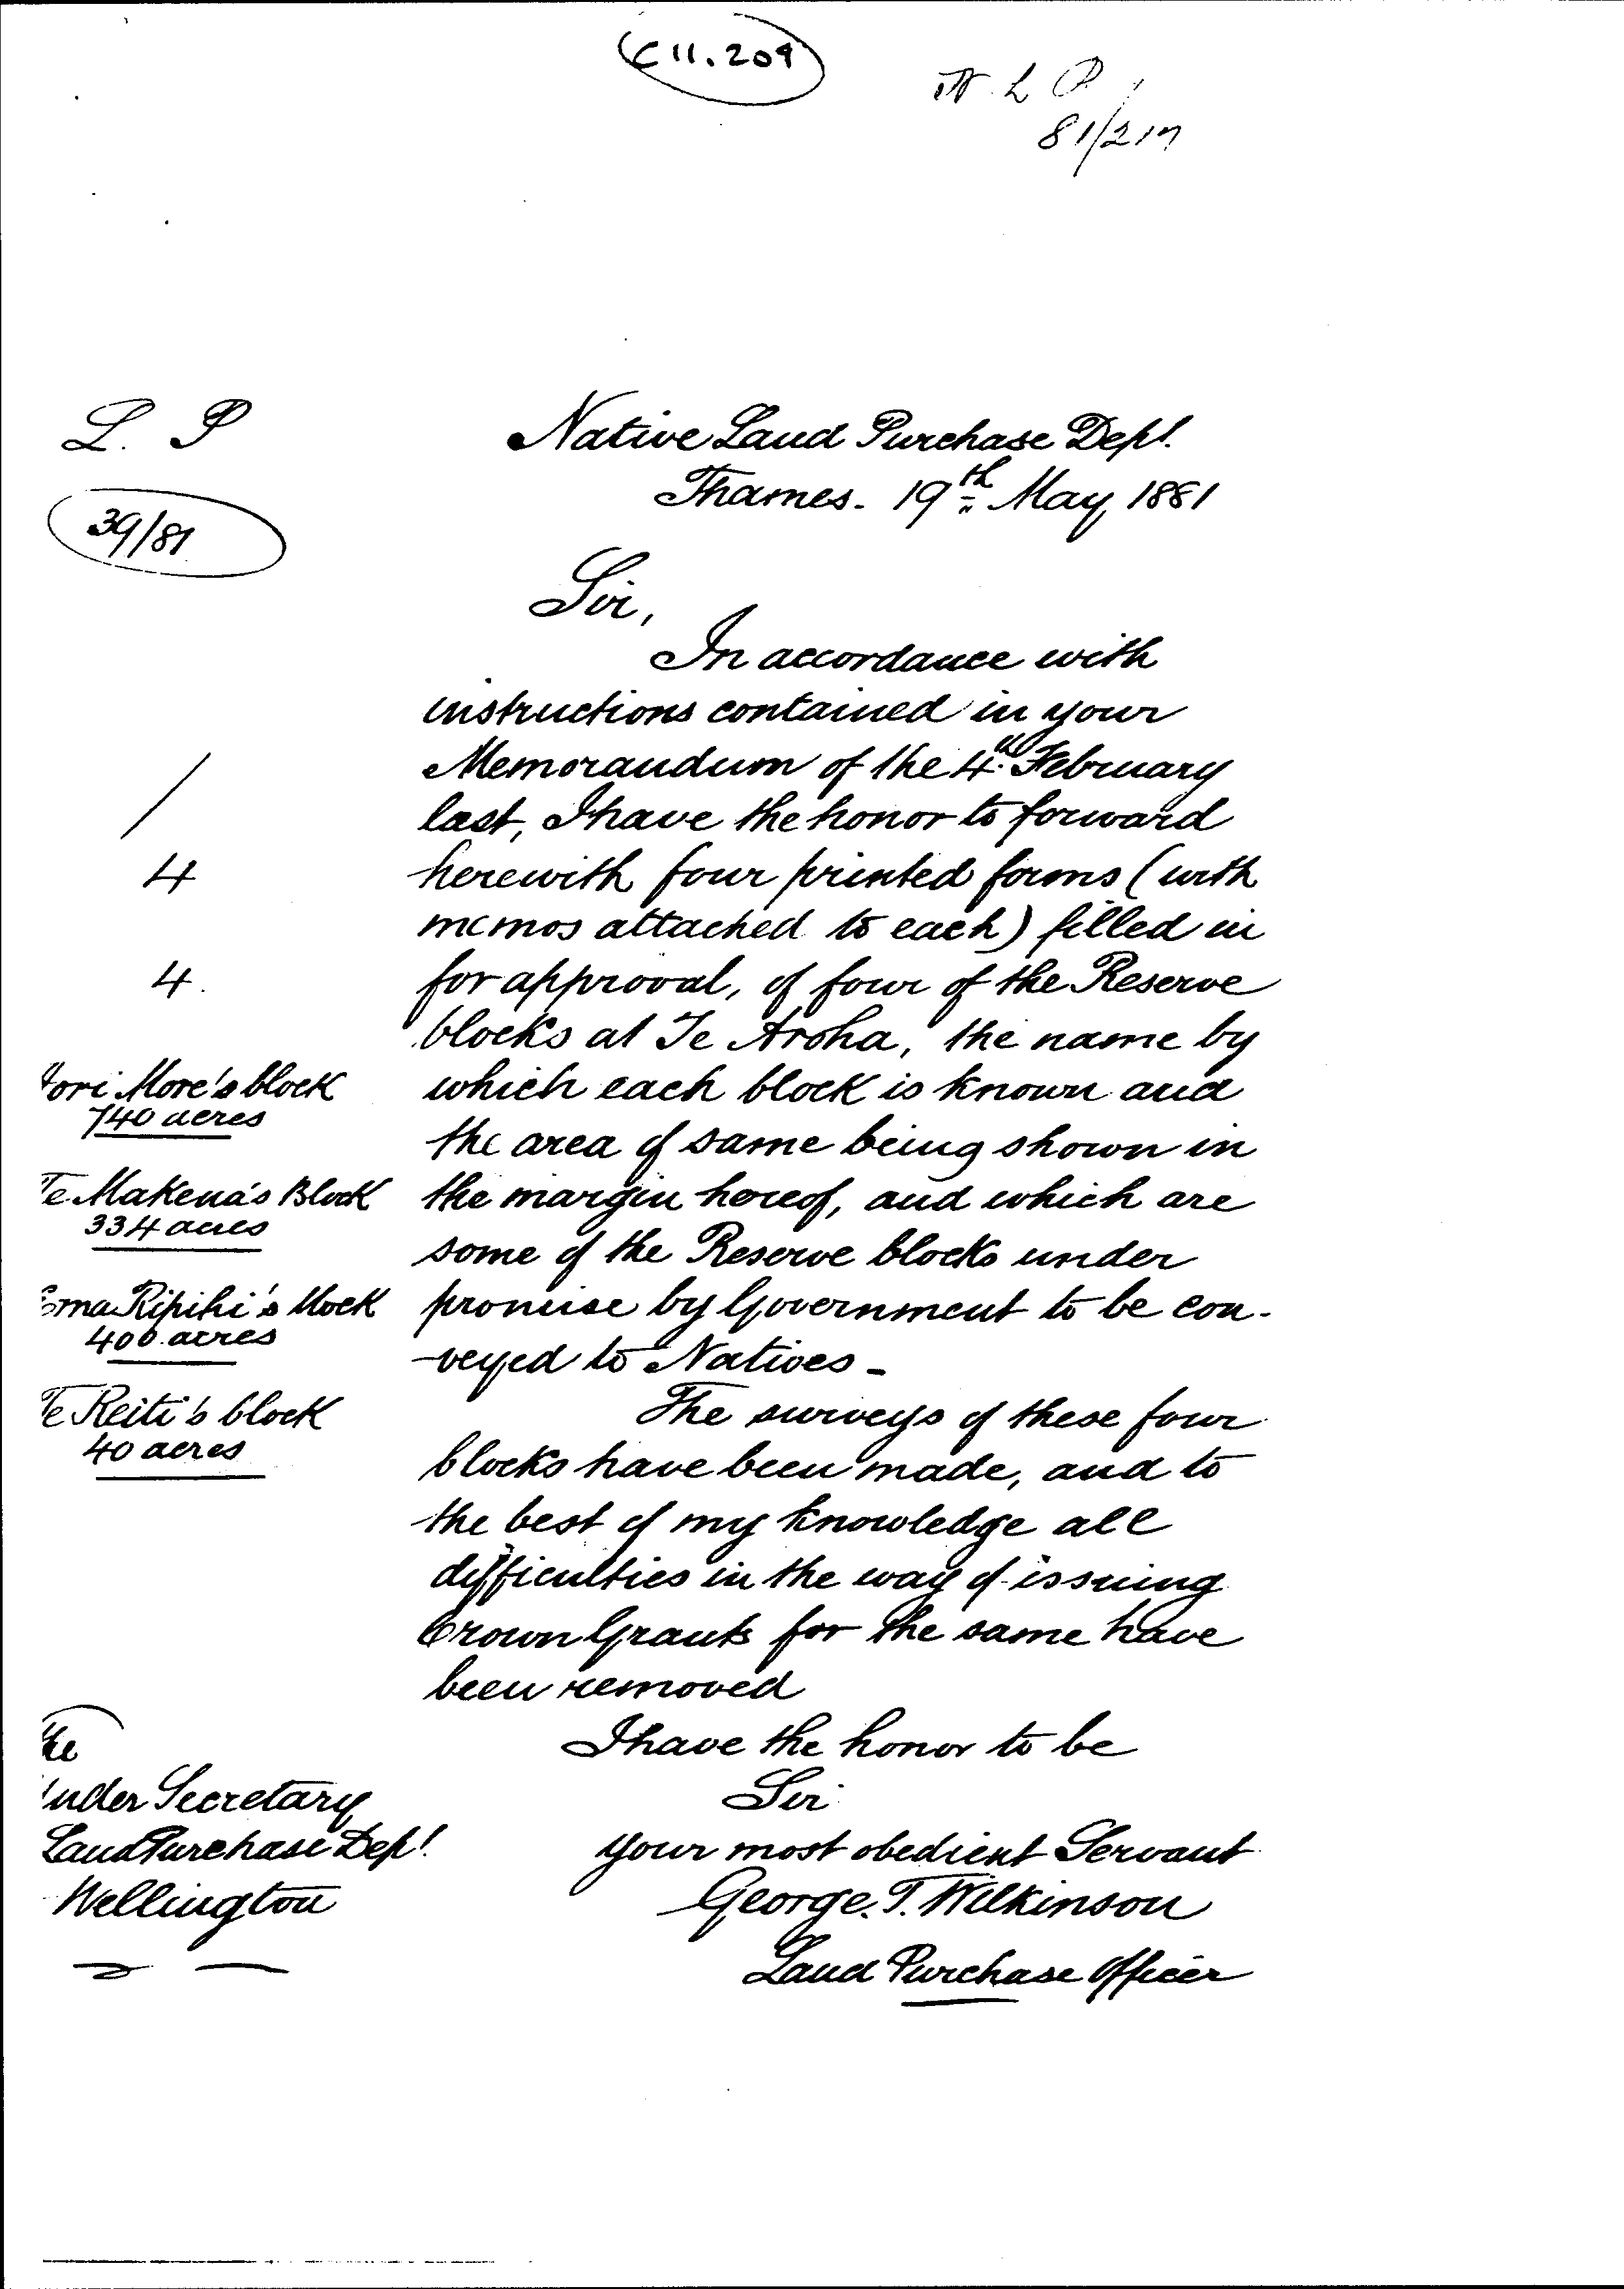 C11.209
N. L. P.
81/217
L. P
39/81
Native Land Purchase Dept.
Thames. 19th May, 1881
Sir,
In accordance with
instructions contained in your
Memorandum of the 4th February
last, I have the honor to forward
4
herewith four printed forms (with
memos attached to each) filled in
4.
for approval, of four of the Reserve
blocks at Te Aroha, the name by
which each block is known and
the area of same being shown in
the margin hereof, and which are
some of the Reserve blocks under
promise by Government to be con-
veyed to Natives -
More's block
740 acres
Te Makena's Block
334 acres
Ripihi's block
400 acres
Te Reiti's block
40 acres
The surveys of these four
blocks have been made, and to
the best of my knowledge all
difficulties in the way of issuing
Crown Grants for the same have
been removed
I have the honor to be
Sir
your most obedient Servant
George. T. Wilkinson
Land Purchase Officer
The
Under Secretary
Land Purchase Dept.
Wellington